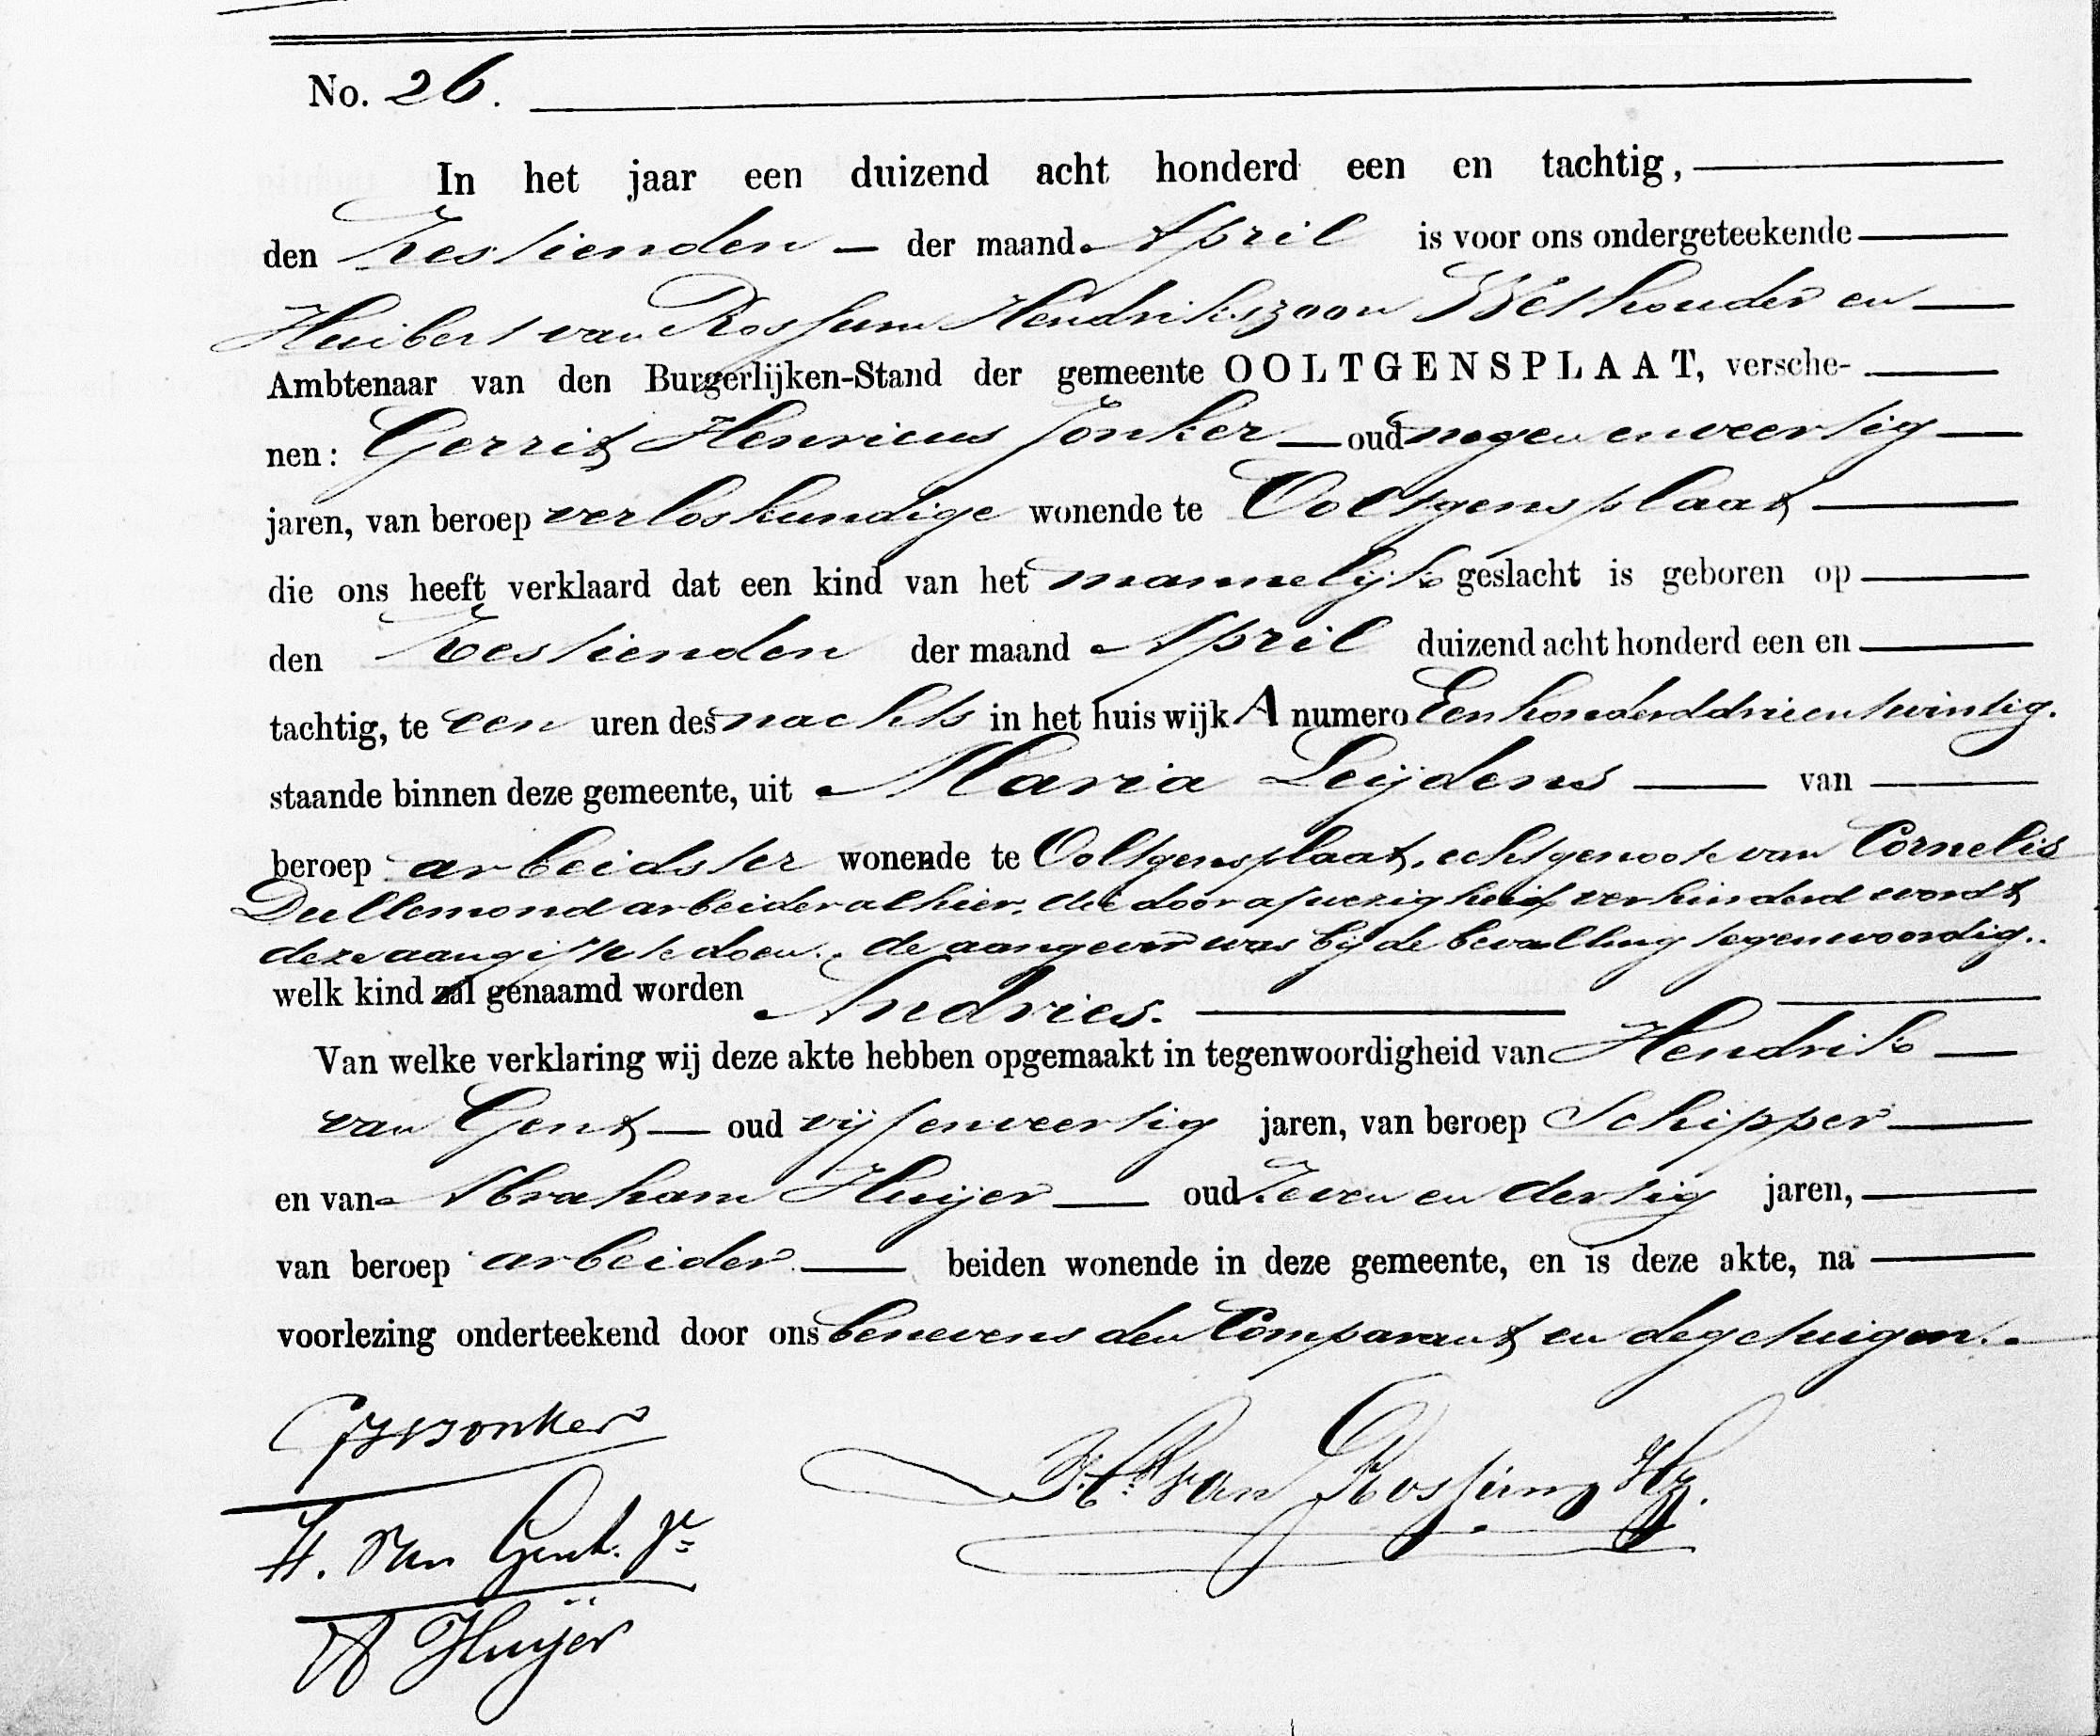 No. 26.
In het jaar een duizend acht honderd een en tachtig,
den Zestienden der maand April is voor ons ondergeteekende
Huibert van Rossum Hendrikszoon Wethouder en
Ambtenaar van den Burgerlijken-Stand der gemeente OOLTGENSPLAAT, versche-
nen: Gerrit Henricus Jonker oud negen en veertig
jaren, van beroep verloskundige wonende te Ooltgensplaat
die ons heeft verklaard dat een kind van het mannelijk geslacht is geboren op
den Zestienden der maand April duizend acht honderd een en
tachtig, te een uren des nachts in het huis wijk A numero Eenhonderddrieentwintig.
staande binnen deze gemeente, uit Maria Leijdens van
beroep arbeidster wonende te Ooltgensplaat, echtgenoote van Cornelis
Dullemond arbeider alhier, die door afwezigheid verhinderd wordt
deze aangifte te doen. de aangever was bij de bevalling tegenwoordig.
welk kind zal genaamd worden Andries.
Van welke verklaring wij deze akte hebben opgemaakt in tegenwoordigheid van Hendrik
van Gent oud vijfenveertig jaren, van beroep Schipper
en van Abraham Huijer oud Zeven en dertig jaren,
van beroep arbeider beiden wonende in deze gemeente, en is deze akte, na
voorlezing onderteekend door ons benevens den Comparant en de getuigen.
GHJonker
H. van Rossum Hz.
H. van Gent. Jr
A Huijer